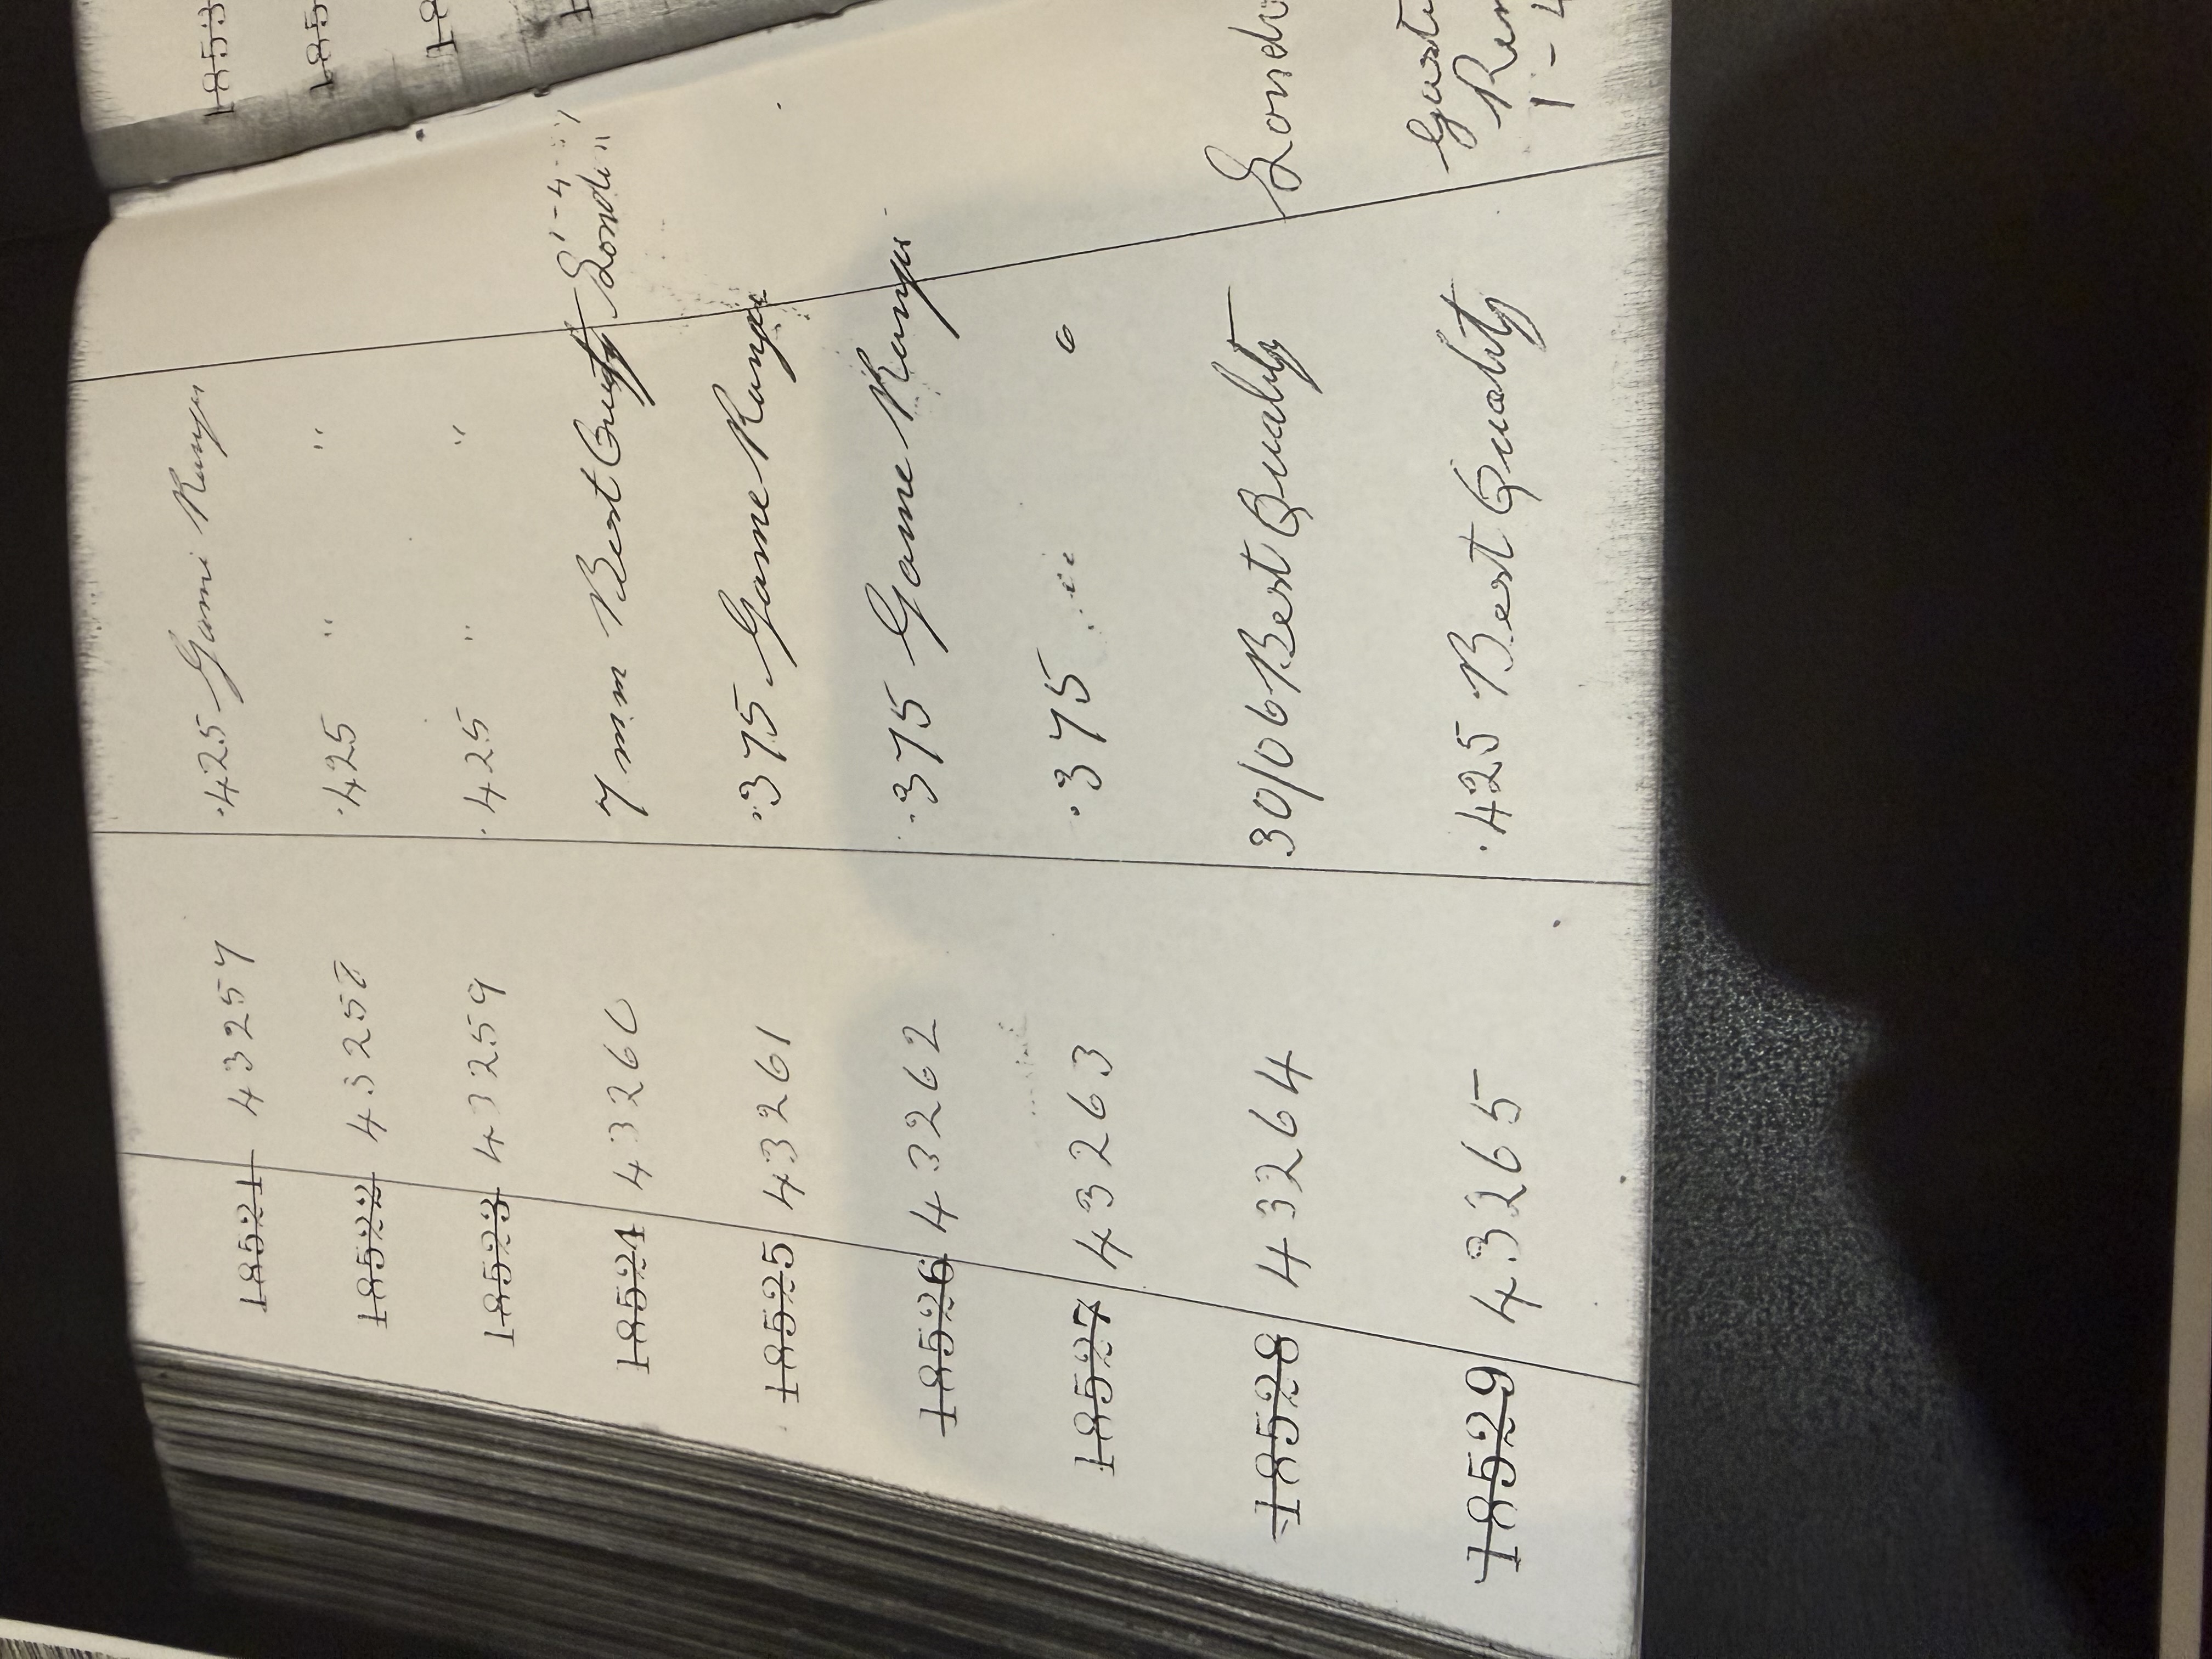 1853
185
18
18521 43257 .425 Game Range
18522 43258 .425 " "
18523 43259 .425 " "
1-4-
18524 43260 7 mm Best Quality London
18525 43261 .375 Game Range
18526 43262 .375 Game Range
18527 43263 .375 "
18528 43264 30/06 Best Quality Londo
18529 43265 .425 Best Quality
1-4